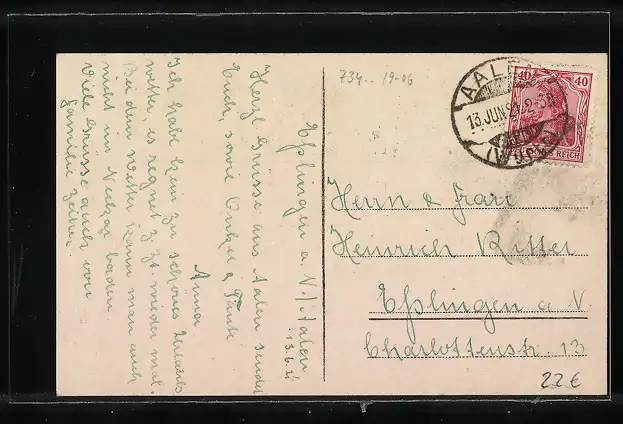 734.. 19-06
AALEN
13. JUN 21. 2-3N
(Württ)
40 40
DEUTSCHES REICH
Eßlingen a. N./Aalen
13.6.21
Herzl. Grüsse aus Aalen sendet
Euch, sowie Onkel & Tante
Anna
Ich habe kein zu schönes Urlaubs-
wetter, es regnet z. Zt. wieder mal.
Bei dem Wetter kann man auch
nicht im Neckar baden.
Viele Grüsse auch von
Familie Zeiher.
Herrn & Frau
Heinrich Ritter
Eßlingen a. N.
Charlottenstr. 13
22 €